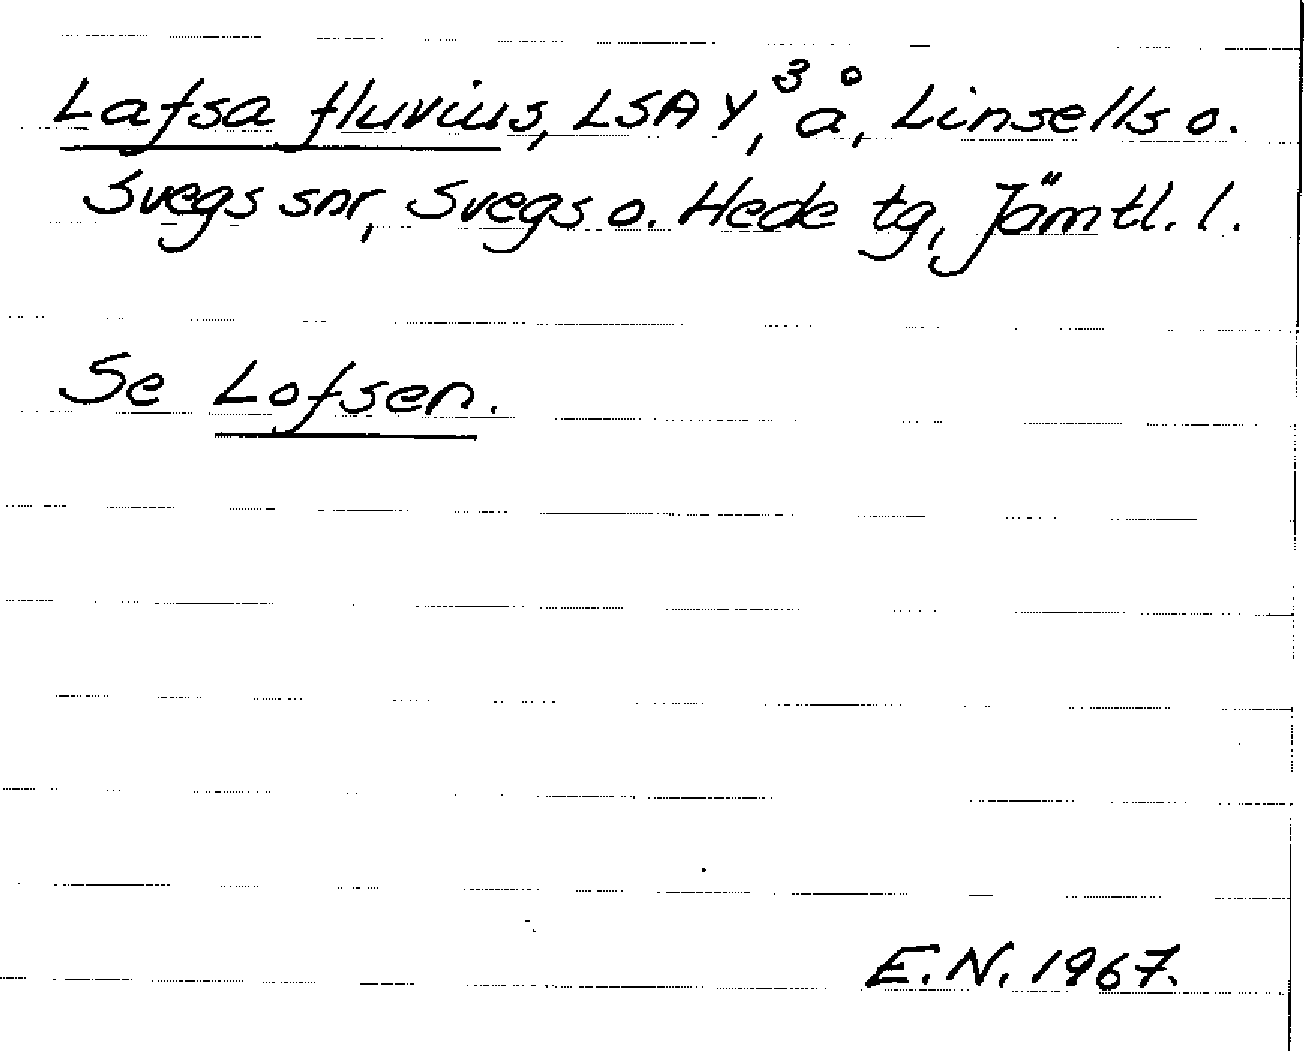 Lafsa fluvius, LSA Y,³ å, Linsells o.
Svegs snr, Svegs o. Hede tg, Jämtl. l.
Se Lofsen.
E.N. 1967.